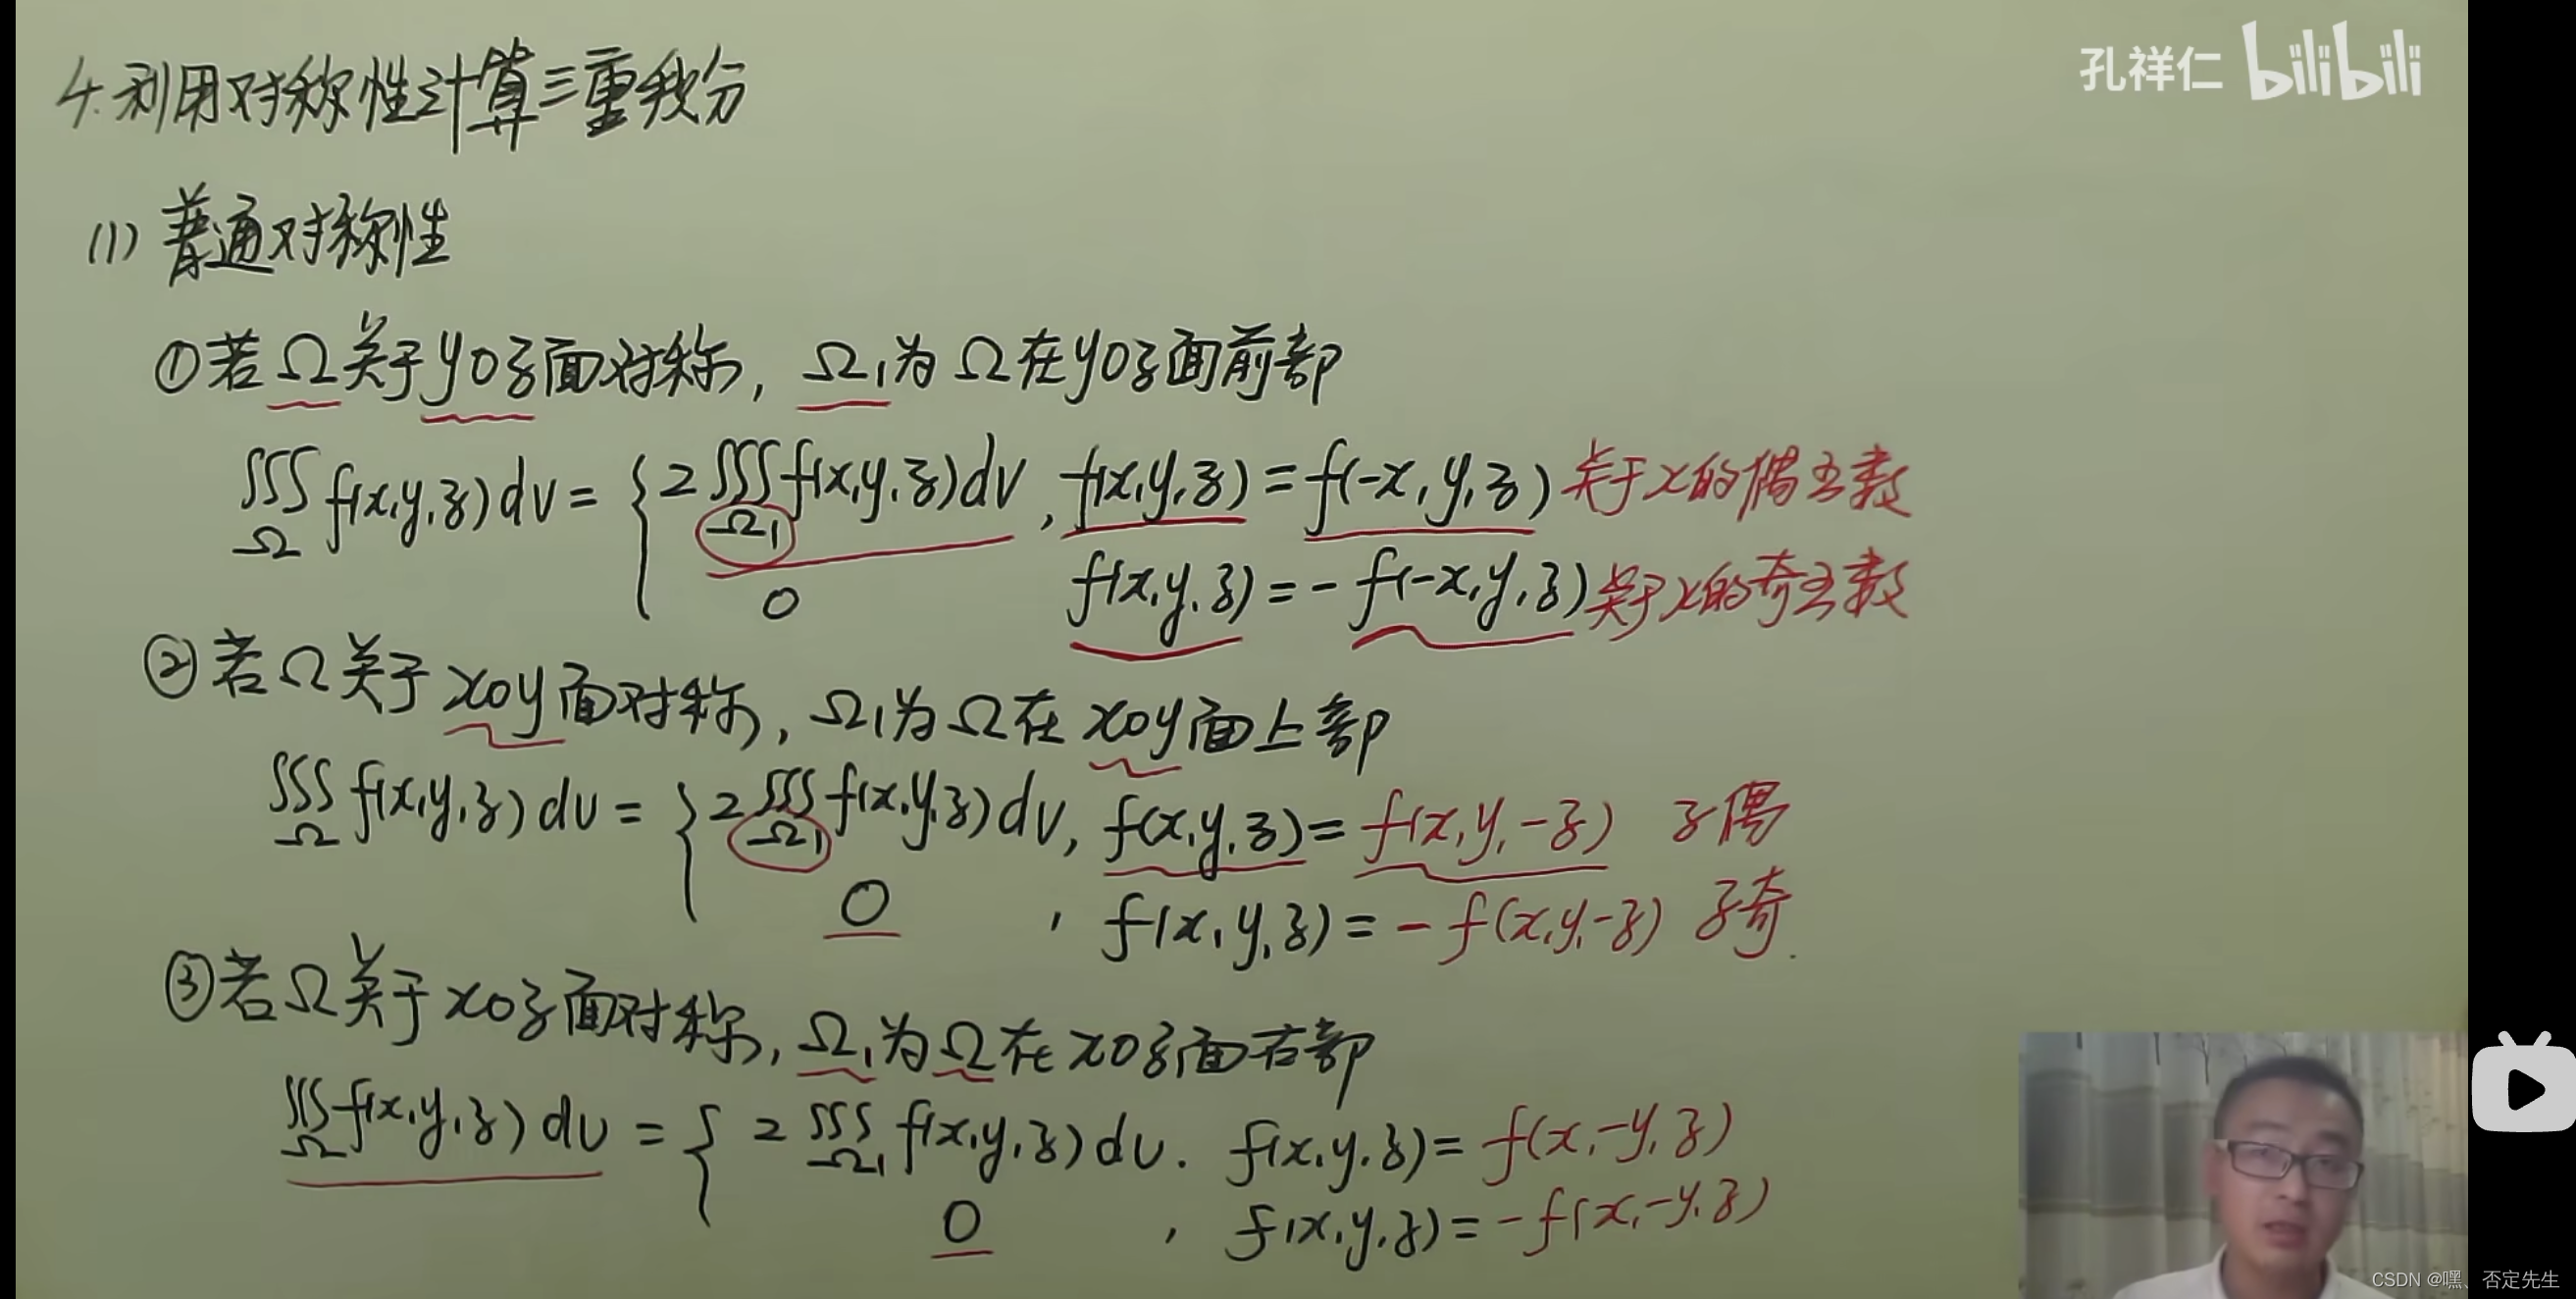 孔祥仁 bilibili
4.利用对称性计算三重积分
(1) 普通对称性
①若Ω关于yoz面对称, Ω₁为Ω在yoz面前部
∭_Ω f(x,y,z)dv = { 2∭_Ω₁ f(x,y,z)dv, f(x,y,z) = f(-x,y,z) 关于x的偶函数
0 f(x,y,z) = -f(-x,y,z) 关于x的奇函数
②若Ω关于xoy面对称, Ω₁为Ω在xoy面上部
∭_Ω f(x,y,z)dv = { 2∭_Ω₁ f(x,y,z)dv, f(x,y,z) = f(x,y,-z) z偶
0 , f(x,y,z) = -f(x,y,-z) z奇.
③若Ω关于xoz面对称, Ω₁为Ω在xoz面右部
∭_Ω f(x,y,z)dv = { 2∭_Ω₁ f(x,y,z)dv. f(x,y,z) = f(x,-y,z)
0 , f(x,y,z) = -f(x,-y,z)
CSDN @嘿、否定先生